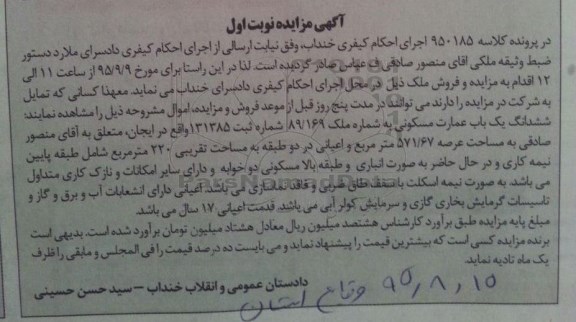 آگهی مزایده نوبت اول
در پرونده کلاسه ۹۵۰۱۸۵ اجرای احکام کیفری خنداب، وفق نیابت ارسالی از اجرای احکام کیفری دادسرای ملارد دستور
ضبط وثیقه ملکی آقای منصور صادقی ف عباس صادر گردیده است. لذا در این راستا برای مورخ ۹۵/۹/۹ از ساعت ۱۱ الی
۱۲ اقدام به مزایده و فروش ملک ذیل در محل اجرای احکام کیفری دادسرای خنداب می نماید. معهذا کسانی که تمایل
به شرکت در مزایده را دارند می توانند در مدت پنج روز قبل از موعد فروش و مزایده، اموال مشروحه ذیل را مشاهده نمایند:
ششدانگ یک باب عمارت مسکونی به شماره ملک ۸۹/۱۶۹ شماره ثبت ۱۳۱۳۸۵ واقع در ایجان، متعلق به آقای منصور
صادقی به مساحت عرصه ۵۷۱/۶۷ متر مربع و اعیانی در دو طبقه به مساحت تقریبی ۲۲۰ مترمربع شامل طبقه پایین
نیمه کاری و در حال حاضر به صورت انباری و طبقه بالا مسکونی دو خوابه و دارای سایر امکانات و نازک کاری متداول
می باشد. به صورت نیمه اسکلت باسقف طاق ضربی و فاقد نماسازی است. اعیانی دارای انشعابات آب و برق و گاز و
تاسیسات گرمایش بخاری گازی و سرمایش کولر آبی می باشد. قدمت اعیانی ۱۷ سال می باشد.
مبلغ پایه مزایده طبق برآورد کارشناس هشتصد میلیون ریال معادل هشتاد میلیون تومان برآورد شده است. بدیهی است
برنده مزایده کسی است که بیشترین قیمت را پیشنهاد نماید و می بایست ده درصد قیمت را فی المجلس و مابقی را ظرف
یک ماه تادیه نماید.
دادستان عمومی و انقلاب خنداب – سید حسن حسینی
۹۵/۸/۱۵ وقایع استان